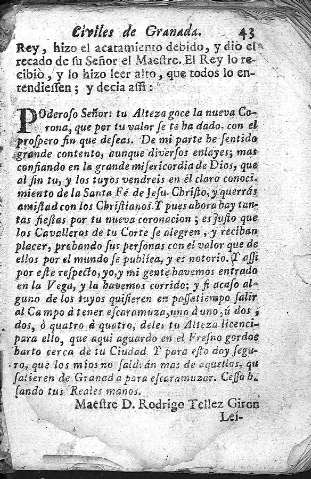 Civiles de Granada. 43
Rey, hizo el acatamiento debido, y diò el
recado de su Señor el Maestre. El Rey lo re-
cibiò, y lo hizo leer alto, que todos lo en-
tendiessen; y decia assi:
POderoso Señor: tu Alteza goce la nueva Co-
rona, que por tu valor se te ha dado, con el
prospero fin que deseas. De mi parte he sentido
grande contento, aunque diversos enlayes; mas
confiando en la grande misericordia de Dios, que
al fin tu, y los tuyos vendreis en el claro conoci-
miento de la Santa Fé de Jesu-Christo, y querràs
amistad con los Christianos. Y pues ahora hay tan-
tas fiestas por tu nueva coronacion; es justo que
los Cavalleros de tu Corte se alegren, y reciban
placer, probando sus personas con el valor que de
ellos por el mundo se publica, y es notorio. Y assi
por este respecto, yo, y mi gente havemos entrado
en la Vega, y la havemos corrido; y si acaso al-
guno de los tuyos quisieren en passatiempo salir
al Campo à tener escaramuza, uno à uno, ù dos à
dos, ò quatro à quatro, deles tu Alteza licencia
para ello, que aqui aguardo en el Fresno gordo,
harto cerca de tu Ciudad. Y para esto doy segu-
ro, que los mios no saldràn mas de aquellos, que
salieren de Granada para escaramuzar. Cesso be-
sando tus Reales manos.
Maestre D. Rodrigo Tellez Giron
Lei-